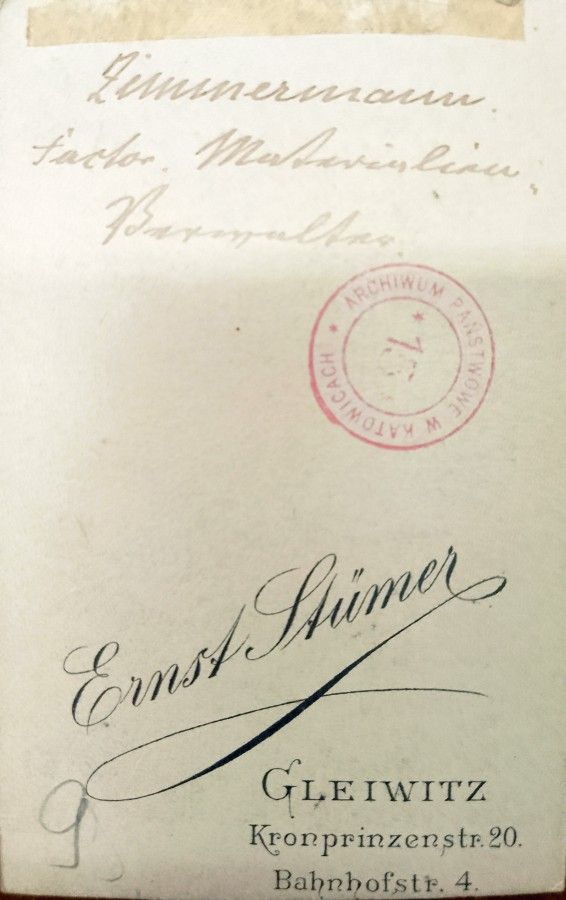 Zimmermann.
Factor. Materialien„
Verwalter.
ARCHIWUM PAŃSTWOWE W KATOWICACH
Ernst Stümer
GLEIWITZ
Kronprinzenstr. 20.
Bahnhofstr. 4.
9